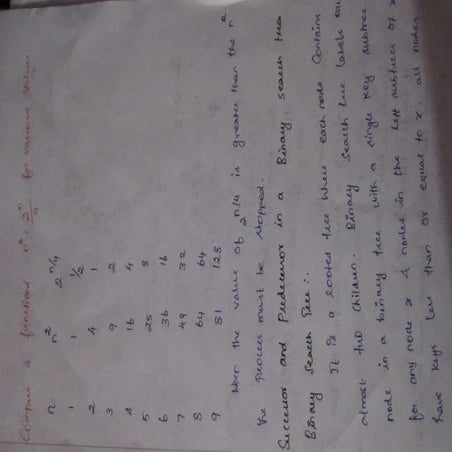 Compare a function n² = 2ⁿ/4 for various values
n n² 2ⁿ/4
1 1 1/2
2 4 1
3 9 2
4 16 4
5 25 8
6 36 16
7 49 32
8 64 64
9 81 128
When the value of 2ⁿ/4 is greater than the n²
the process must be stopped.
Successor and Predecessor in a Binary search tree
Binary Search Tree:-
It is a rooted tree where each node contains
atmost two children. Binary Search tree labels each
node in a binary tree with a single key subtree
for any node x & nodes in the left subtree of x
have keys less than or equal to x. all nodes